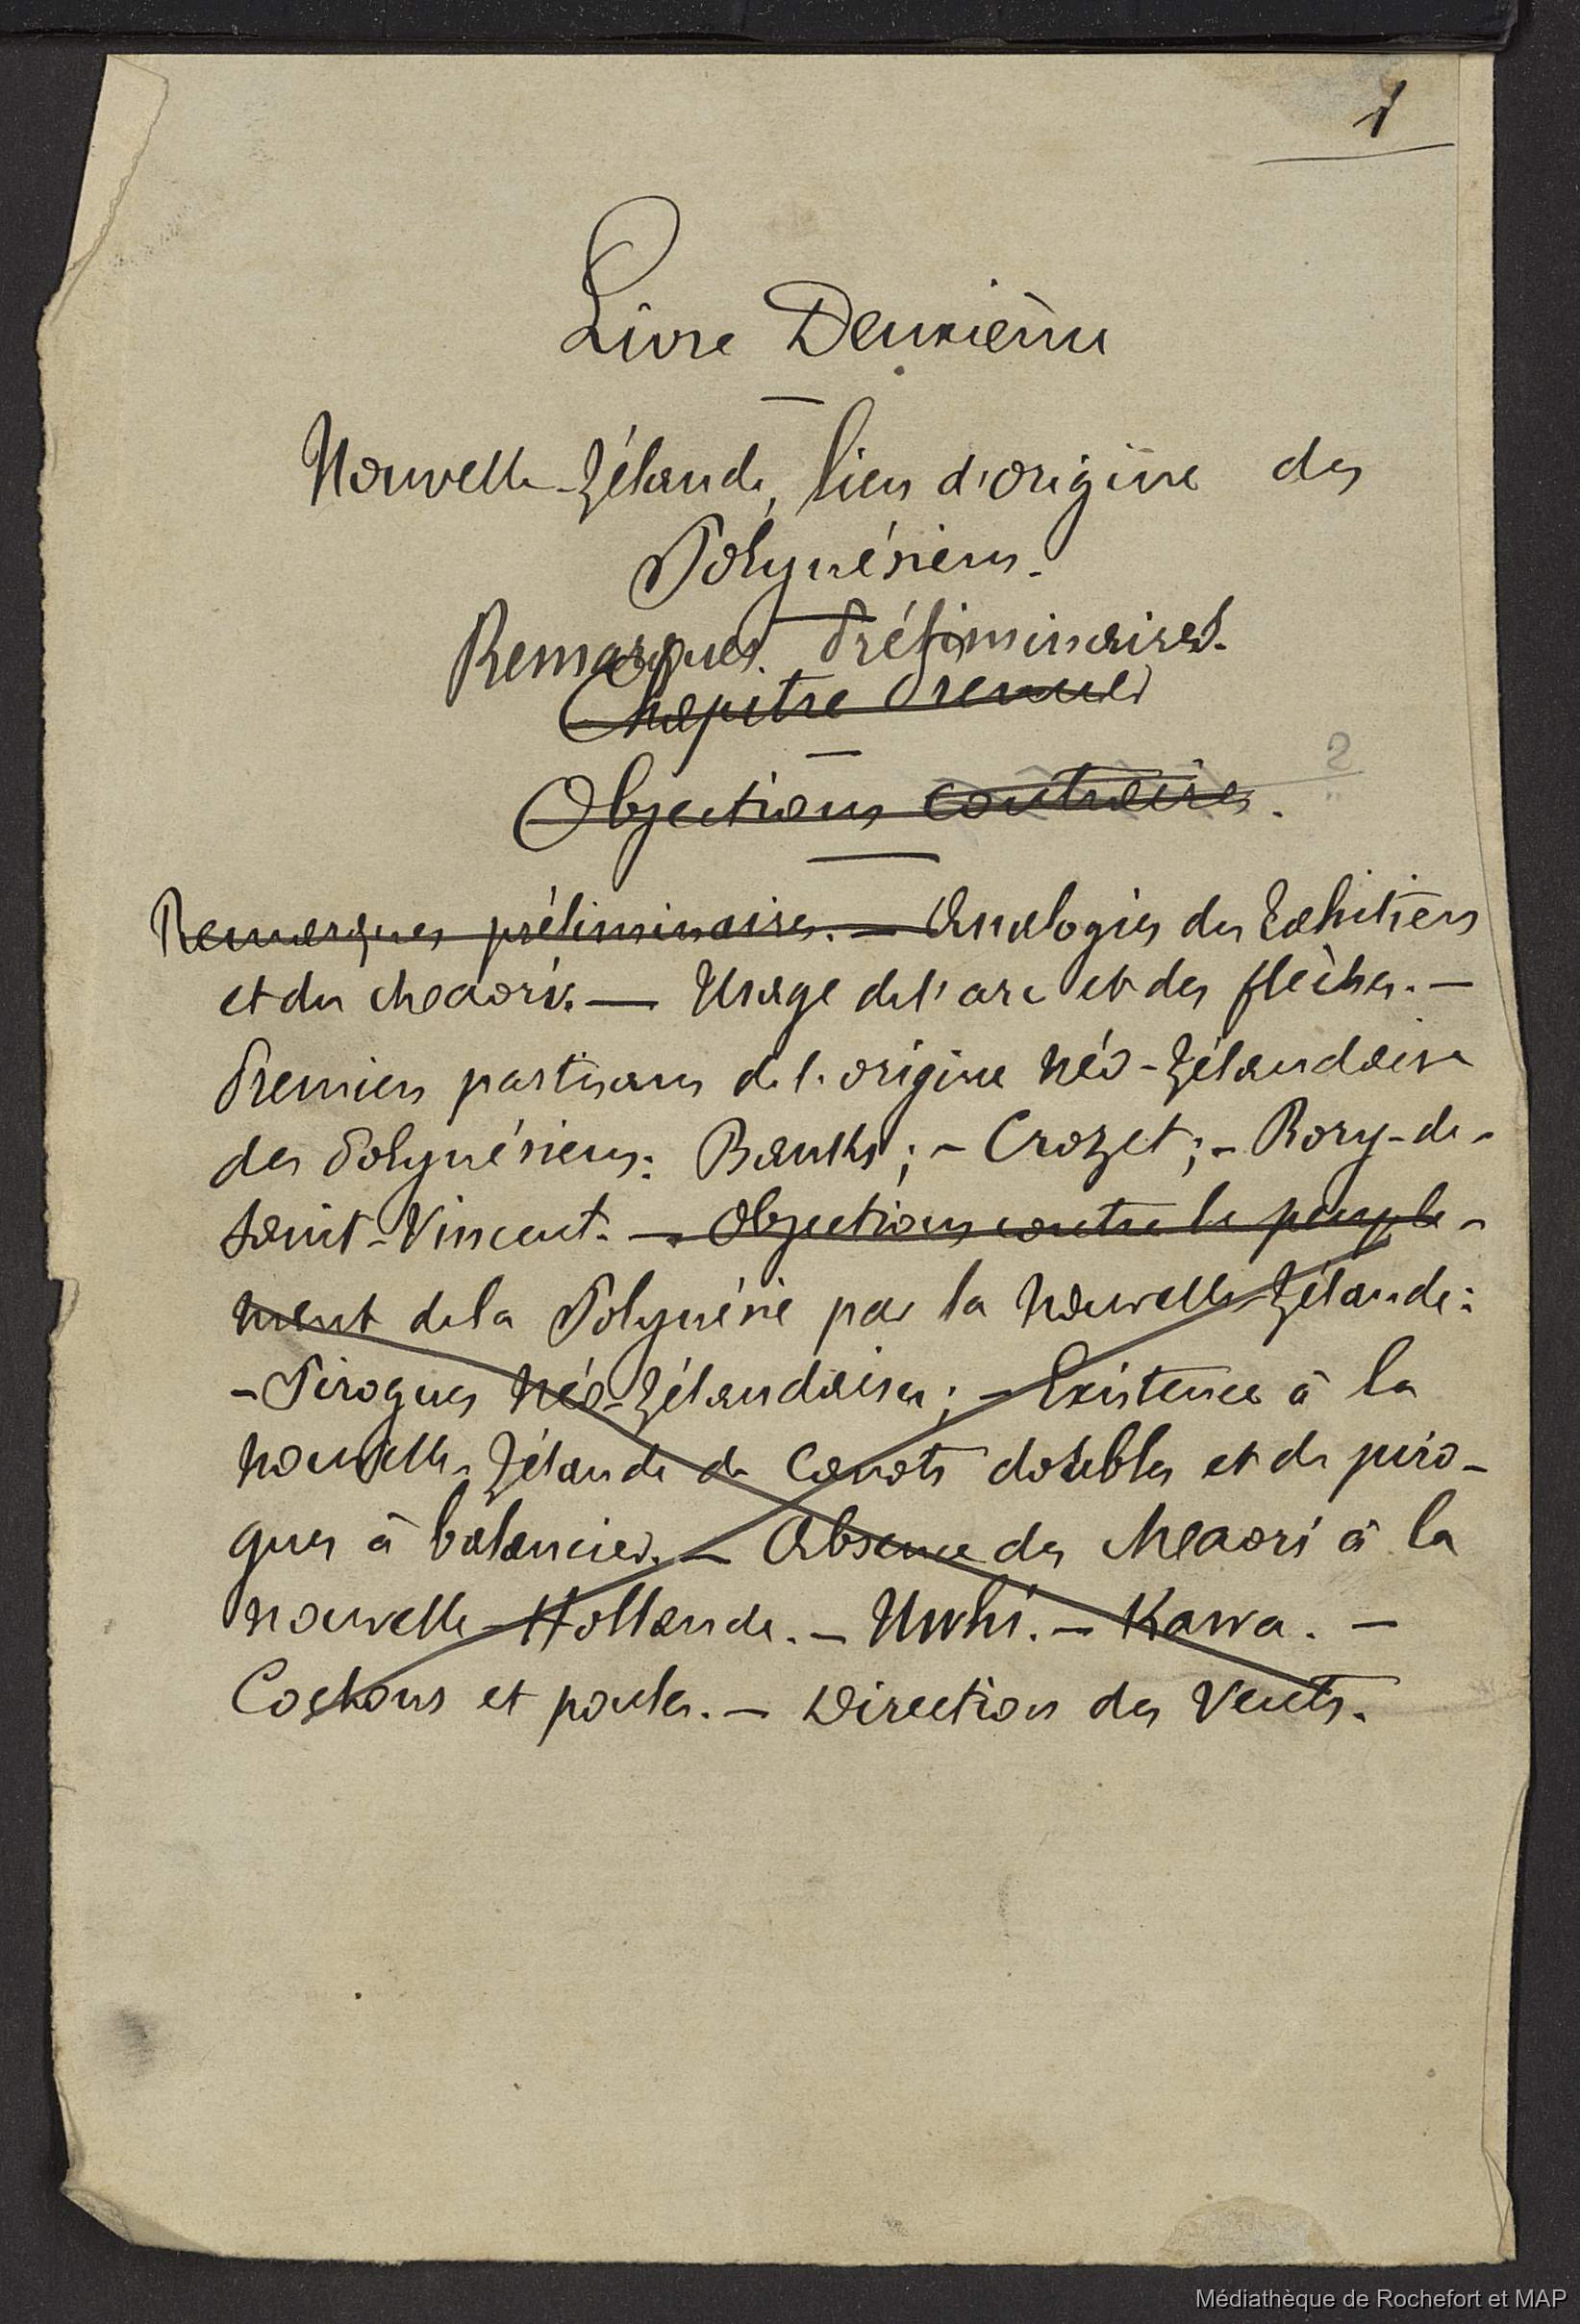 1
Livre Deuxième
Nouvelle-Zélande, lieu d'origine des
Polynésiens.
Remarques Préliminaires.
Chapitre Premier
2
Objections contraires.
Remarques préliminaires. — Analogies des Tahitiens
et des Maori. — Usage de l'arc et des flèches. —
Premiers partisans de l'origine Néo-Zélandaise
des Polynésiens: Banks; - Crozet; - Bory-de-
Saint-Vincent. — Objections contre le peuple-
ment de la Polynésie par la Nouvelle-Zélande:
- Pirogues Néo-Zélandaises; - Existence à la
Nouvelle-Zélande de Canots doubles et de piro-
gues à balancier. — Absence des Maori à la
Nouvelle-Hollande. — Uwhi. — Kawa. —
Cochons et poules. — Direction des Vents.
Médiathèque de Rochefort et MAP